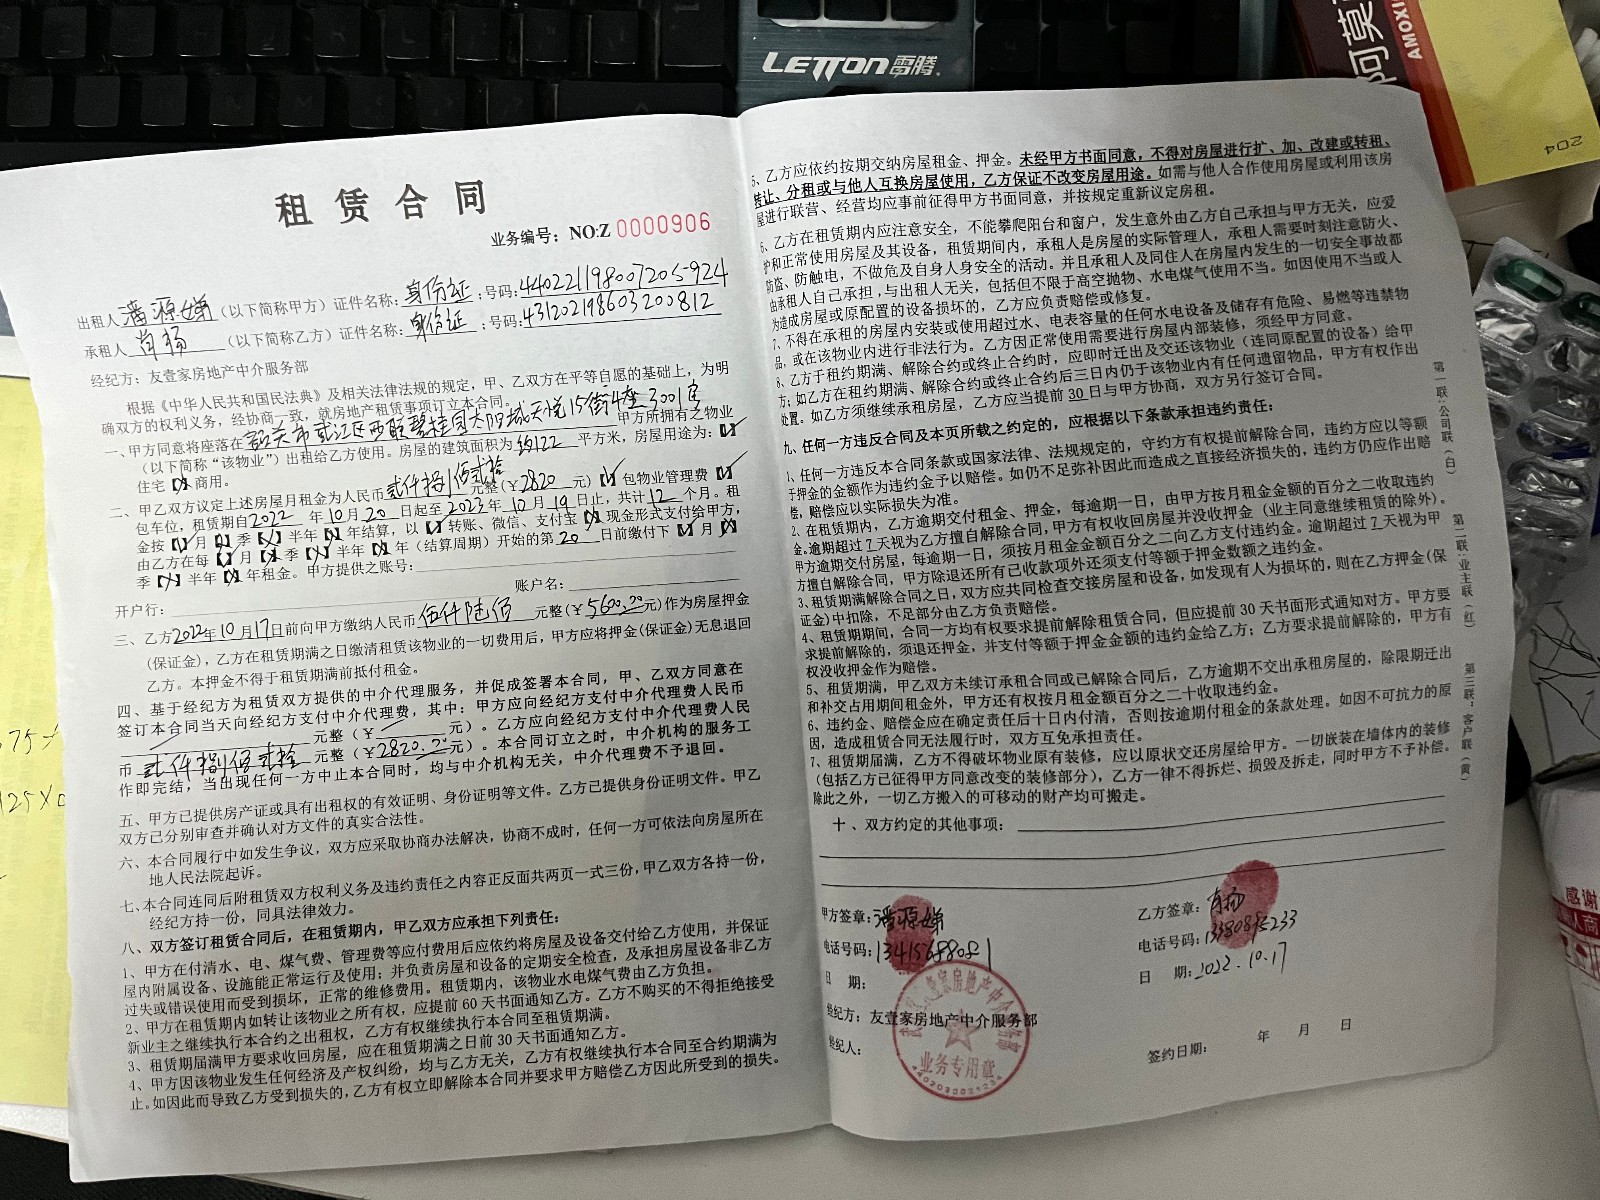 LETTON 雷腾
阿莫
AMOXI
204
租赁合同
业务编号：NO:Z 0000906
出租人 潘源娣 （以下简称甲方）证件名称：身份证；号码：440221198007205924
承租人 肖杨 （以下简称乙方）证件名称：身份证；号码：431202198603200812
经纪方：友壹家房地产中介服务部
根据《中华人民共和国民法典》及相关法律法规的规定，甲、乙双方在平等自愿的基础上，为明
确双方的权利义务，经协商一致，就房地产租赁事项订立本合同。
一、甲方同意将座落在 韶关市武江区西联碧桂园太阳城天悦15街4座3001房 甲方所拥有之物业
（以下简称“该物业”）出租给乙方使用。房屋的建筑面积为 约122 平方米，房屋用途为：【✓】
住宅【✗】商用。
二、甲乙双方议定上述房屋月租金为人民币 贰仟捌佰贰拾 元整（￥2820 元）【✓】包物业管理费【✓】
包车位，租赁期自2022 年10月20日起至2023年10月19日止，共计12个月。租
金按【✓】月【✗】季【✗】半年【✗】年结算，以【✓】转账、微信、支付宝【✗】现金形式支付给甲方，
由乙方在每【✓】月【✗】季【✗】半年【✗】年（结算周期）开始的第20日前缴付下【✓】月【✗】
季【✗】半年【✗】年租金。甲方提供之账号：
开户行： 账户名：
三、乙方2022年10月17日前向甲方缴纳人民币 伍仟陆佰 元整（￥5600.00元）作为房屋押金
（保证金），乙方在租赁期满之日缴清租赁该物业的一切费用后，甲方应将押金（保证金）无息退回
乙方。本押金不得于租赁期满前抵付租金。
四、基于经纪方为租赁双方提供的中介代理服务，并促成签署本合同，甲、乙双方同意在
签订本合同当天向经纪方支付中介代理费，其中：甲方应向经纪方支付中介代理费人民币
元整（￥ 元）。乙方应向经纪方支付中介代理费人民
币 贰仟捌佰贰拾 元整（￥2820.00元）。本合同订立之时，中介机构的服务工
作即完结，当出现任何一方中止本合同时，均与中介机构无关，中介代理费不予退回。
五、甲方已提供房产证或具有出租权的有效证明、身份证明等文件。乙方已提供身份证明文件。甲乙
双方已分别审查并确认对方文件的真实合法性。
六、本合同履行中如发生争议，双方应采取协商办法解决，协商不成时，任何一方可依法向房屋所在
地人民法院起诉。
七、本合同连同后附租赁双方权利义务及违约责任之内容正反面共两页一式三份，甲乙双方各持一份，
经纪方持一份，同具法律效力。
八、双方签订租赁合同后，在租赁期内，甲乙双方应承担下列责任：
1、甲方在付清水、电、煤气费、管理费等应付费用后应依约将房屋及设备交付给乙方使用，并保证
屋内附属设备、设施能正常运行及使用；并负责房屋和设备的定期安全检查，及承担房屋设备非乙方
过失或错误使用而受到损坏，正常的维修费用。租赁期内，该物业水电煤气费由乙方负担。
2、甲方在租赁期内如转让该物业之所有权，应提前60天书面通知乙方。乙方不购买的不得拒绝接受
新业主之继续执行本合约之出租权，乙方有权继续执行本合同至租赁期满。
3、租赁期届满甲方要求收回房屋，应在租赁期满之日前30天书面通知乙方。
4、甲方因该物业发生任何经济及产权纠纷，均与乙方无关，乙方有权继续执行本合同至合约期满为
止。如因此而导致乙方受到损失的，乙方有权立即解除本合同并要求甲方赔偿乙方因此所受到的损失。
5、乙方应依约按期交纳房屋租金、押金。未经甲方书面同意，不得对房屋进行扩、加、改建或转租、
转让、分租或与他人互换房屋使用，乙方保证不改变房屋用途。如需与他人合作使用房屋或利用该房
屋进行联营、经营均应事前征得甲方书面同意，并按规定重新议定房租。
6、乙方在租赁期内应注意安全，不能攀爬阳台和窗户，发生意外由乙方自己承担与甲方无关，应爱
护和正常使用房屋及其设备，租赁期间内，承租人是房屋的实际管理人，承租人需要时刻注意防火、
防盗、防触电，不做危及自身人身安全的活动。并且承租人及同住人在房屋内发生的一切安全事故都
由承租人自己承担，与出租人无关，包括但不限于高空抛物、水电煤气使用不当。如因使用不当或人
为造成房屋或原配置的设备损坏的，乙方应负责赔偿或修复。
7、不得在承租的房屋内安装或使用超过水、电表容量的任何水电设备及储存有危险、易燃等违禁物
品，或在该物业内进行非法行为。乙方因正常使用需要进行房屋内部装修，须经甲方同意。
8、乙方于租约期满、解除合约或终止合约时，应即时迁出及交还该物业（连同原配置的设备）给甲
方；如乙方在租约期满、解除合约或终止合约后三日内仍于该物业内有任何遗留物品，甲方有权作出
处置。如乙方须继续承租房屋，乙方应当提前30日与甲方协商，双方另行签订合同。
九、任何一方违反合同及本页所载之约定的，应根据以下条款承担违约责任：
1、任何一方违反本合同条款或国家法律、法规规定的，守约方有权提前解除合同，违约方应以等额
于押金的金额作为违约金予以赔偿。如仍不足弥补因此而造成之直接经济损失的，违约方仍应作出赔
偿，赔偿应以实际损失为准。
2、在租赁期内，乙方逾期交付租金、押金，每逾期一日，由甲方按月租金金额的百分之二收取违约
金。逾期超过7天视为乙方擅自解除合同，甲方有权收回房屋并没收押金（业主同意继续租赁的除外）。
甲方逾期交付房屋，每逾期一日，须按月租金金额百分之二向乙方支付违约金。逾期超过7天视为甲
方擅自解除合同，甲方除退还所有已收款项外还须支付等额于押金数额之违约金。
3、租赁期满解除合同之日，双方应共同检查交接房屋和设备，如发现有人为损坏的，则在乙方押金（保
证金）中扣除，不足部分由乙方负责赔偿。
4、租赁期期间，合同一方均有权要求提前解除租赁合同，但应提前30天书面形式通知对方。甲方要
求提前解除的，须退还押金，并支付等额于押金金额的违约金给乙方；乙方要求提前解除的，甲方有
权没收押金作为赔偿。
5、租赁期满，甲乙双方未续订承租合同或已解除合同后，乙方逾期不交出承租房屋的，除限期迁出
和补交占用期间租金外，甲方还有权按月租金额百分之二十收取违约金。
6、违约金、赔偿金应在确定责任后十日内付清，否则按逾期付租金的条款处理。如因不可抗力的原
因，造成租赁合同无法履行时，双方互免承担责任。
7、租赁期届满，乙方不得破坏物业原有装修，应以原状交还房屋给甲方。一切嵌装在墙体内的装修
（包括乙方已征得甲方同意改变的装修部分），乙方一律不得拆烂、损毁及拆走，同时甲方不予补偿。
除此之外，一切乙方搬入的可移动的财产均可搬走。
十、双方约定的其他事项：
甲方签章：潘源娣
乙方签章：肖杨
电话号码：13415688081
电话号码：13380895233
日 期：
日 期：2022.10.17
经纪方：友壹家房地产中介服务部
经纪人：
签约日期： 年 月 日
业务专用章
第一联：公司联（白）
第二联：业主联（红）
第三联：客户联（黄）
感谢